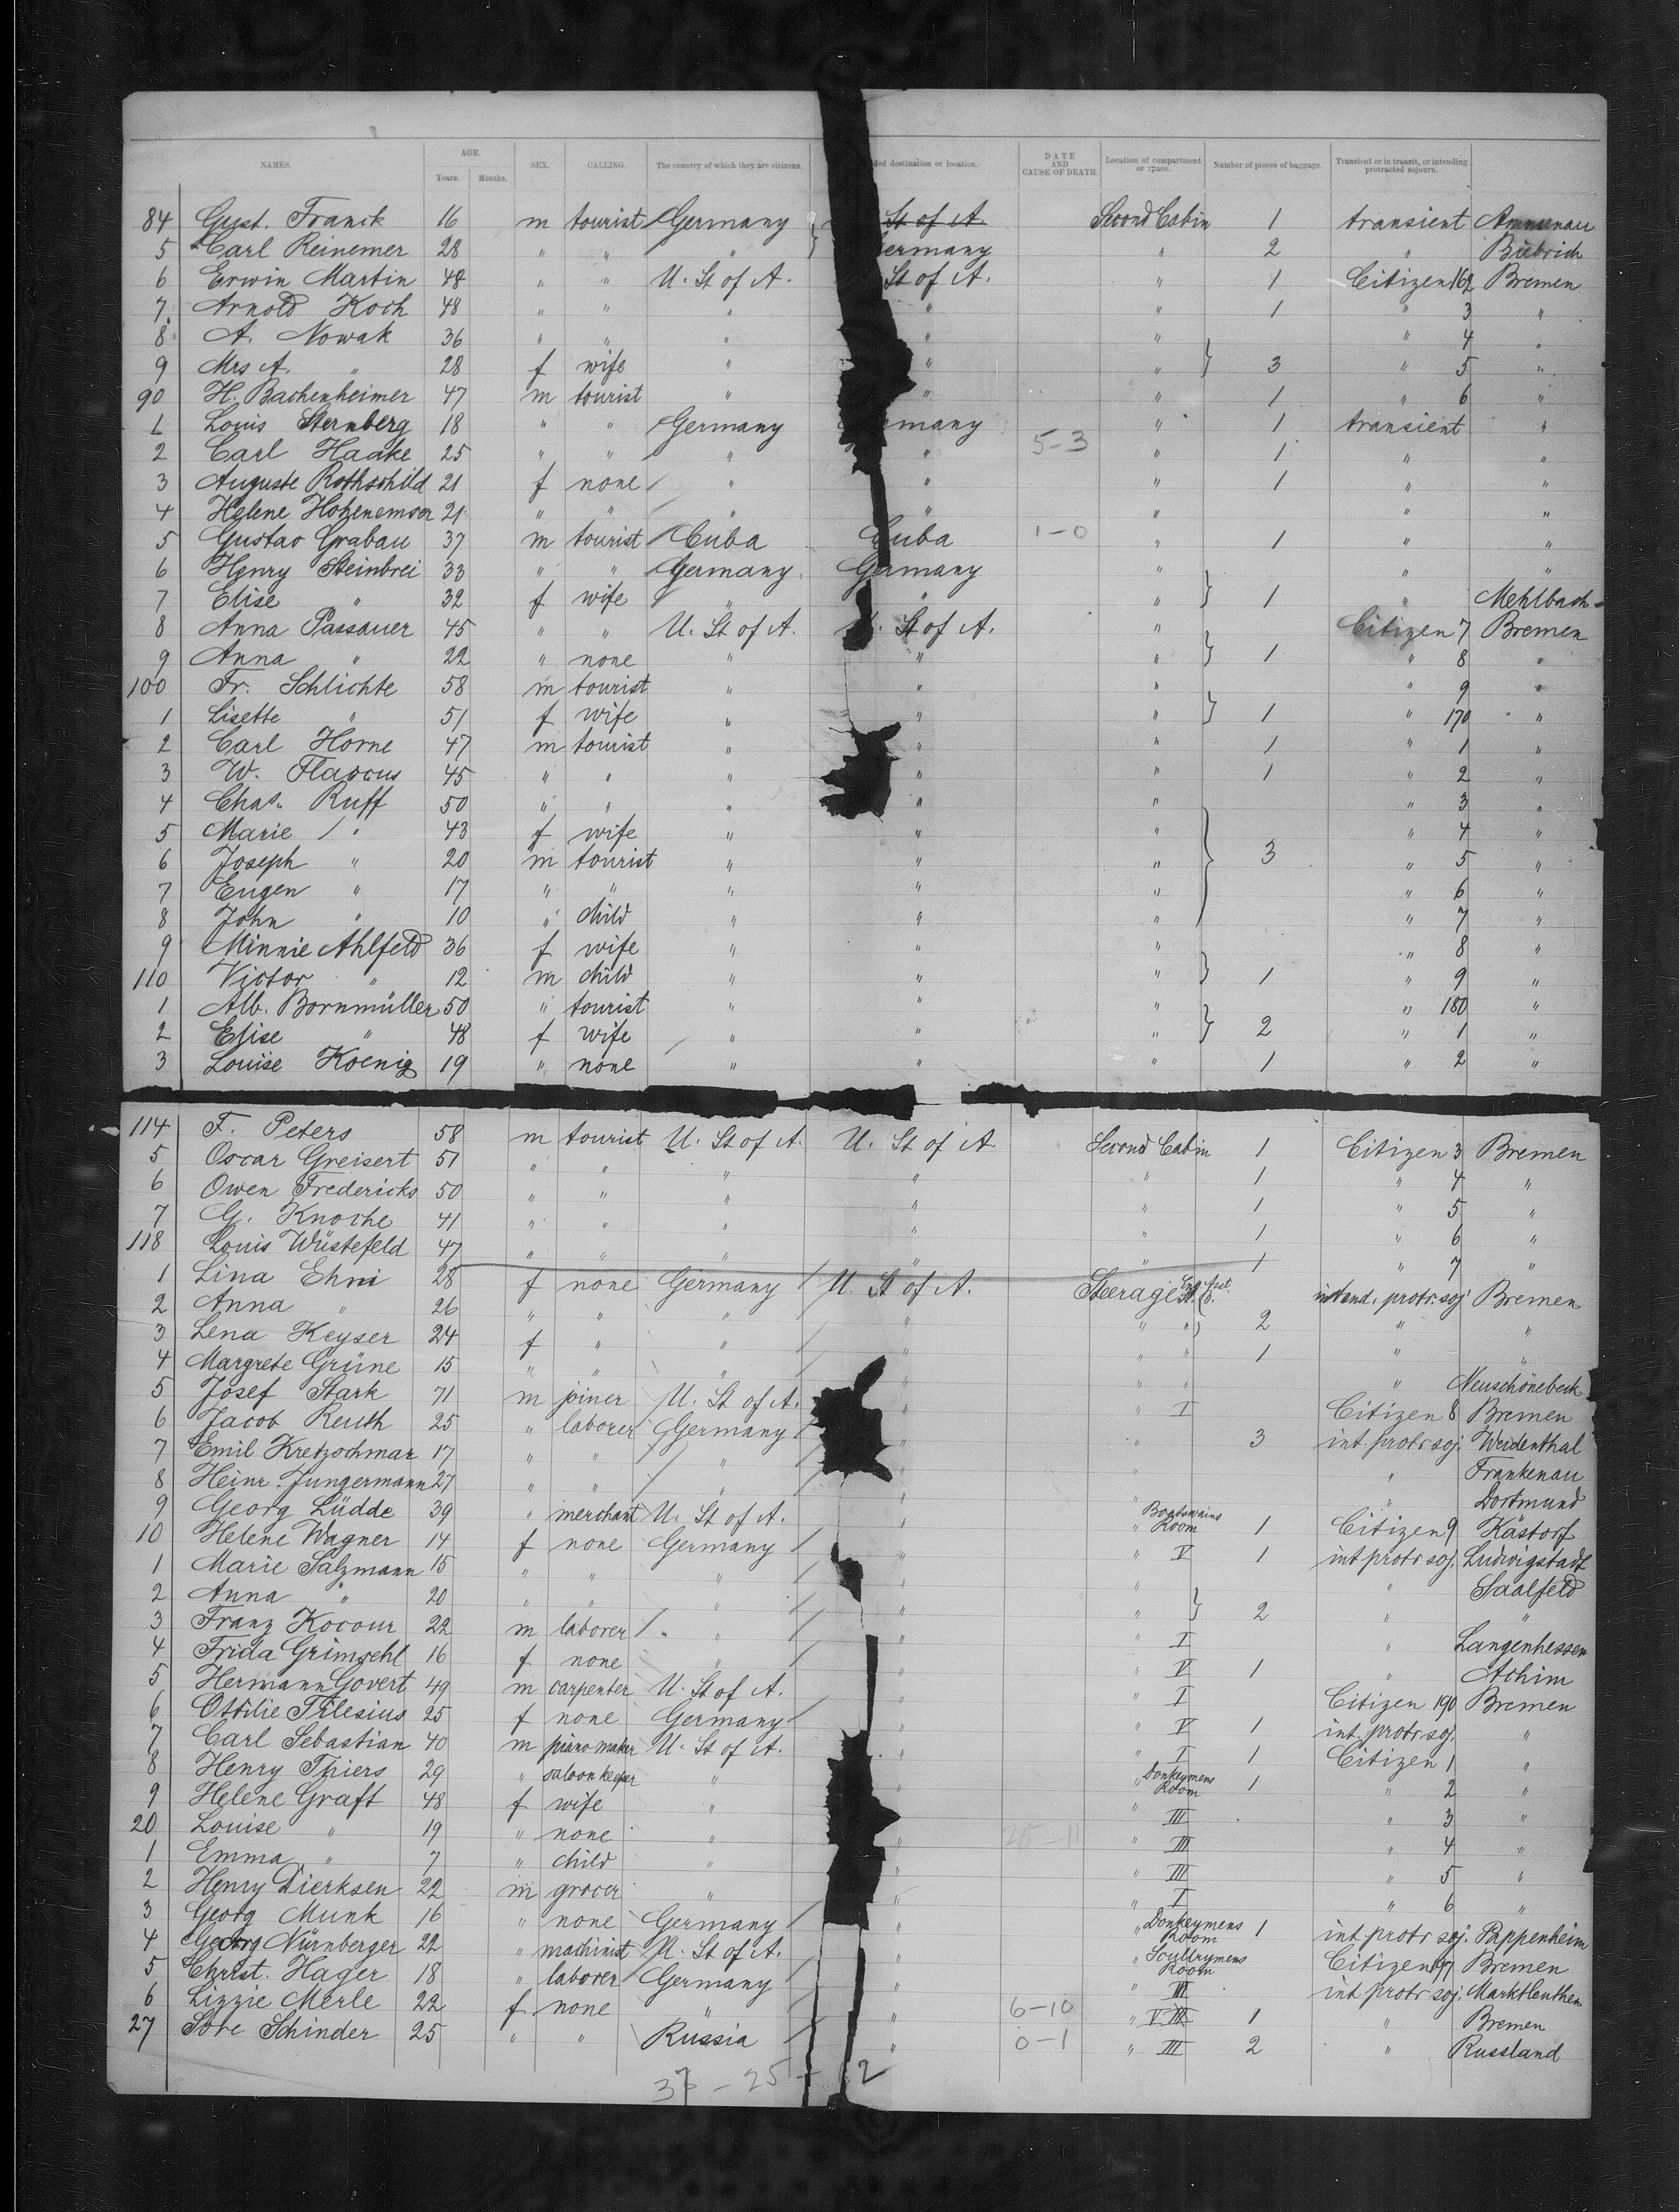 NAMES. AGE. Years. Months. SEX. CALLING. The country of which they are citizens. ded destination or location. DATE AND CAUSE OF DEATH. Location of compartment or space. Number of pieces of baggage. Transient or in transit, or intending protracted sojourn.
84 Gust. Franck 16 m tourist Germany St of A. Second Cabin 1 transient
5 Carl Reinemer 28 " " " } ermany " 2 " Biebrich
6 Erwin Martin 48 " " U. St of A. St of A. " 1 Citizen 162 Bremen
7 Arnold Koch 48 " " " " " 1 " 3 "
8 A. Nowak 36 " " " " " " 4 "
9 Mrs A. " 28 f wife " " " } 3 " 5 "
90 H. Bachenheimer 47 m tourist " " " 1 " 6 "
1 Louis Sternberg 18 " " Germany many " 1 transient "
2 Carl Haake 25 " " " " 5-3 " 1 " "
3 Auguste Rothschild 21 f none " " " 1 " "
4 Helene 21 " " " " " " "
5 Gustav Grabau 37 m tourist Cuba Cuba 1-0 " 1 " "
6 Henry Steinbrei 33 " " Germany Germany " " "
7 Elise " 32 f wife " " " } 1 " Mehlbach
8 Anna Passauer 45 " " U. St of A. U. St of A. " Citizen 7 Bremen
9 Anna " 22 " none " " " } 1 " 8 "
100 Fr. Schlichte 58 m tourist " " " " 9 "
1 Lisette " 51 f wife " " " } 1 " 170 "
2 Carl Horne 47 m tourist " " " 1 " 1 "
3 W. Flaccus 45 " " " " " 1 " 2 "
4 Chas. Ruff 50 " " " " " " 3 "
5 Marie " 43 f wife " " " " 4 "
6 Joseph " 20 m tourist " " " } 3 " 5 "
7 Eugen " 17 " " " " " " 6 "
8 John " 10 " child " " " " 7 "
9 Minnie Ahlfeld 36 f wife " " " " 8 "
110 Victor " 12 m child " " " } 1 " 9 "
1 Alb. Bornmüller 50 " tourist " " " " 180 "
2 Elise " 48 f wife " " " } 2 " 1 "
3 Louise Koenig 19 " none " " " 1 " 2 "
114 F. Peters 58 m tourist U. St of A. U. St of A Second Cabin 1 Citizen 3 Bremen
5 Oscar Greisert 51 " " " " " 1 " 4 "
6 Owen Fredericks 50 " " " " " 1 " 5 "
7 G. Knoche 41 " " " " " 1 " 6 "
118 Louis Wüstefeld 47 " " " " " 1 " 7 "
1 Lina Ehni 28 f none Germany U. St of A. Steerage intend. protr. soj. Bremen
2 Anna " 26 " " " " " " } 2 " "
3 Lena Keyser 24 f " " " " " 1 " "
4 Margrete Grüne 15 " " " " " " " Neuschönebeck
5 Josef Stark 71 m joiner U. St of A. " " I Citizen 8 Bremen
6 Jacob Reuth 25 " laborer Germany " " 3 int. protr soj. Weidenthal
7 Emil Kretzschmar 17 " " " " " " Frankenau
8 Heinr. Jungermann 27 " " " " " " Dortmund
9 Georg Lüdde 39 " merchant U. St of A. " " Boatswains Room 1 Citizen 9 Kästorf
10 Helene Wagner 14 f none Germany " " V 1 int protr soj. Ludwigstadt
1 Marie Salzmann 15 " " " " " " Saalfeld
2 Anna " 20 " " " " " } 2 " "
3 Franz Kocour 22 m laborer " " " I " Langenhessen
4 Frida Grimsehl 16 f none " " " V 1 " Achim
5 Hermann Govert 49 m carpenter U. St of A. " " I Citizen 190 Bremen
6 Ottilie Tilesius 25 f none Germany " " V 1 int. protr soj. "
7 Carl Sebastian 40 m piano maker U. St of A. " " I 1 Citizen 1 "
8 Henry Thiers 29 " saloon keeper " " " Donkeymens Room 1 " 2 "
9 Helene Graft 48 f wife " " III " 3 "
20 Louise " 19 " none " " " III " 4 "
1 Emma " 7 " child " " " III " 5 "
2 Henry Dierksen 22 m grocer " " " I " 6 "
3 Georg Munk 16 " none Germany " " Donkeymens Room 1 int protr soj. Pappenheim
4 Georg Nürnberger 22 " machinist U. St of A. " " Scullrymens Room Citizen 197 Bremen
5 Christ. Hager 18 " laborer Germany " " III int protr soj. Marktleuthen
6 Lizzie Merle 22 f none " " 6-10 " V 1 " Bremen
27 Sore Schinder 25 " " Russia " 0-1 " III 2 " Russland
37 - 25 - 2